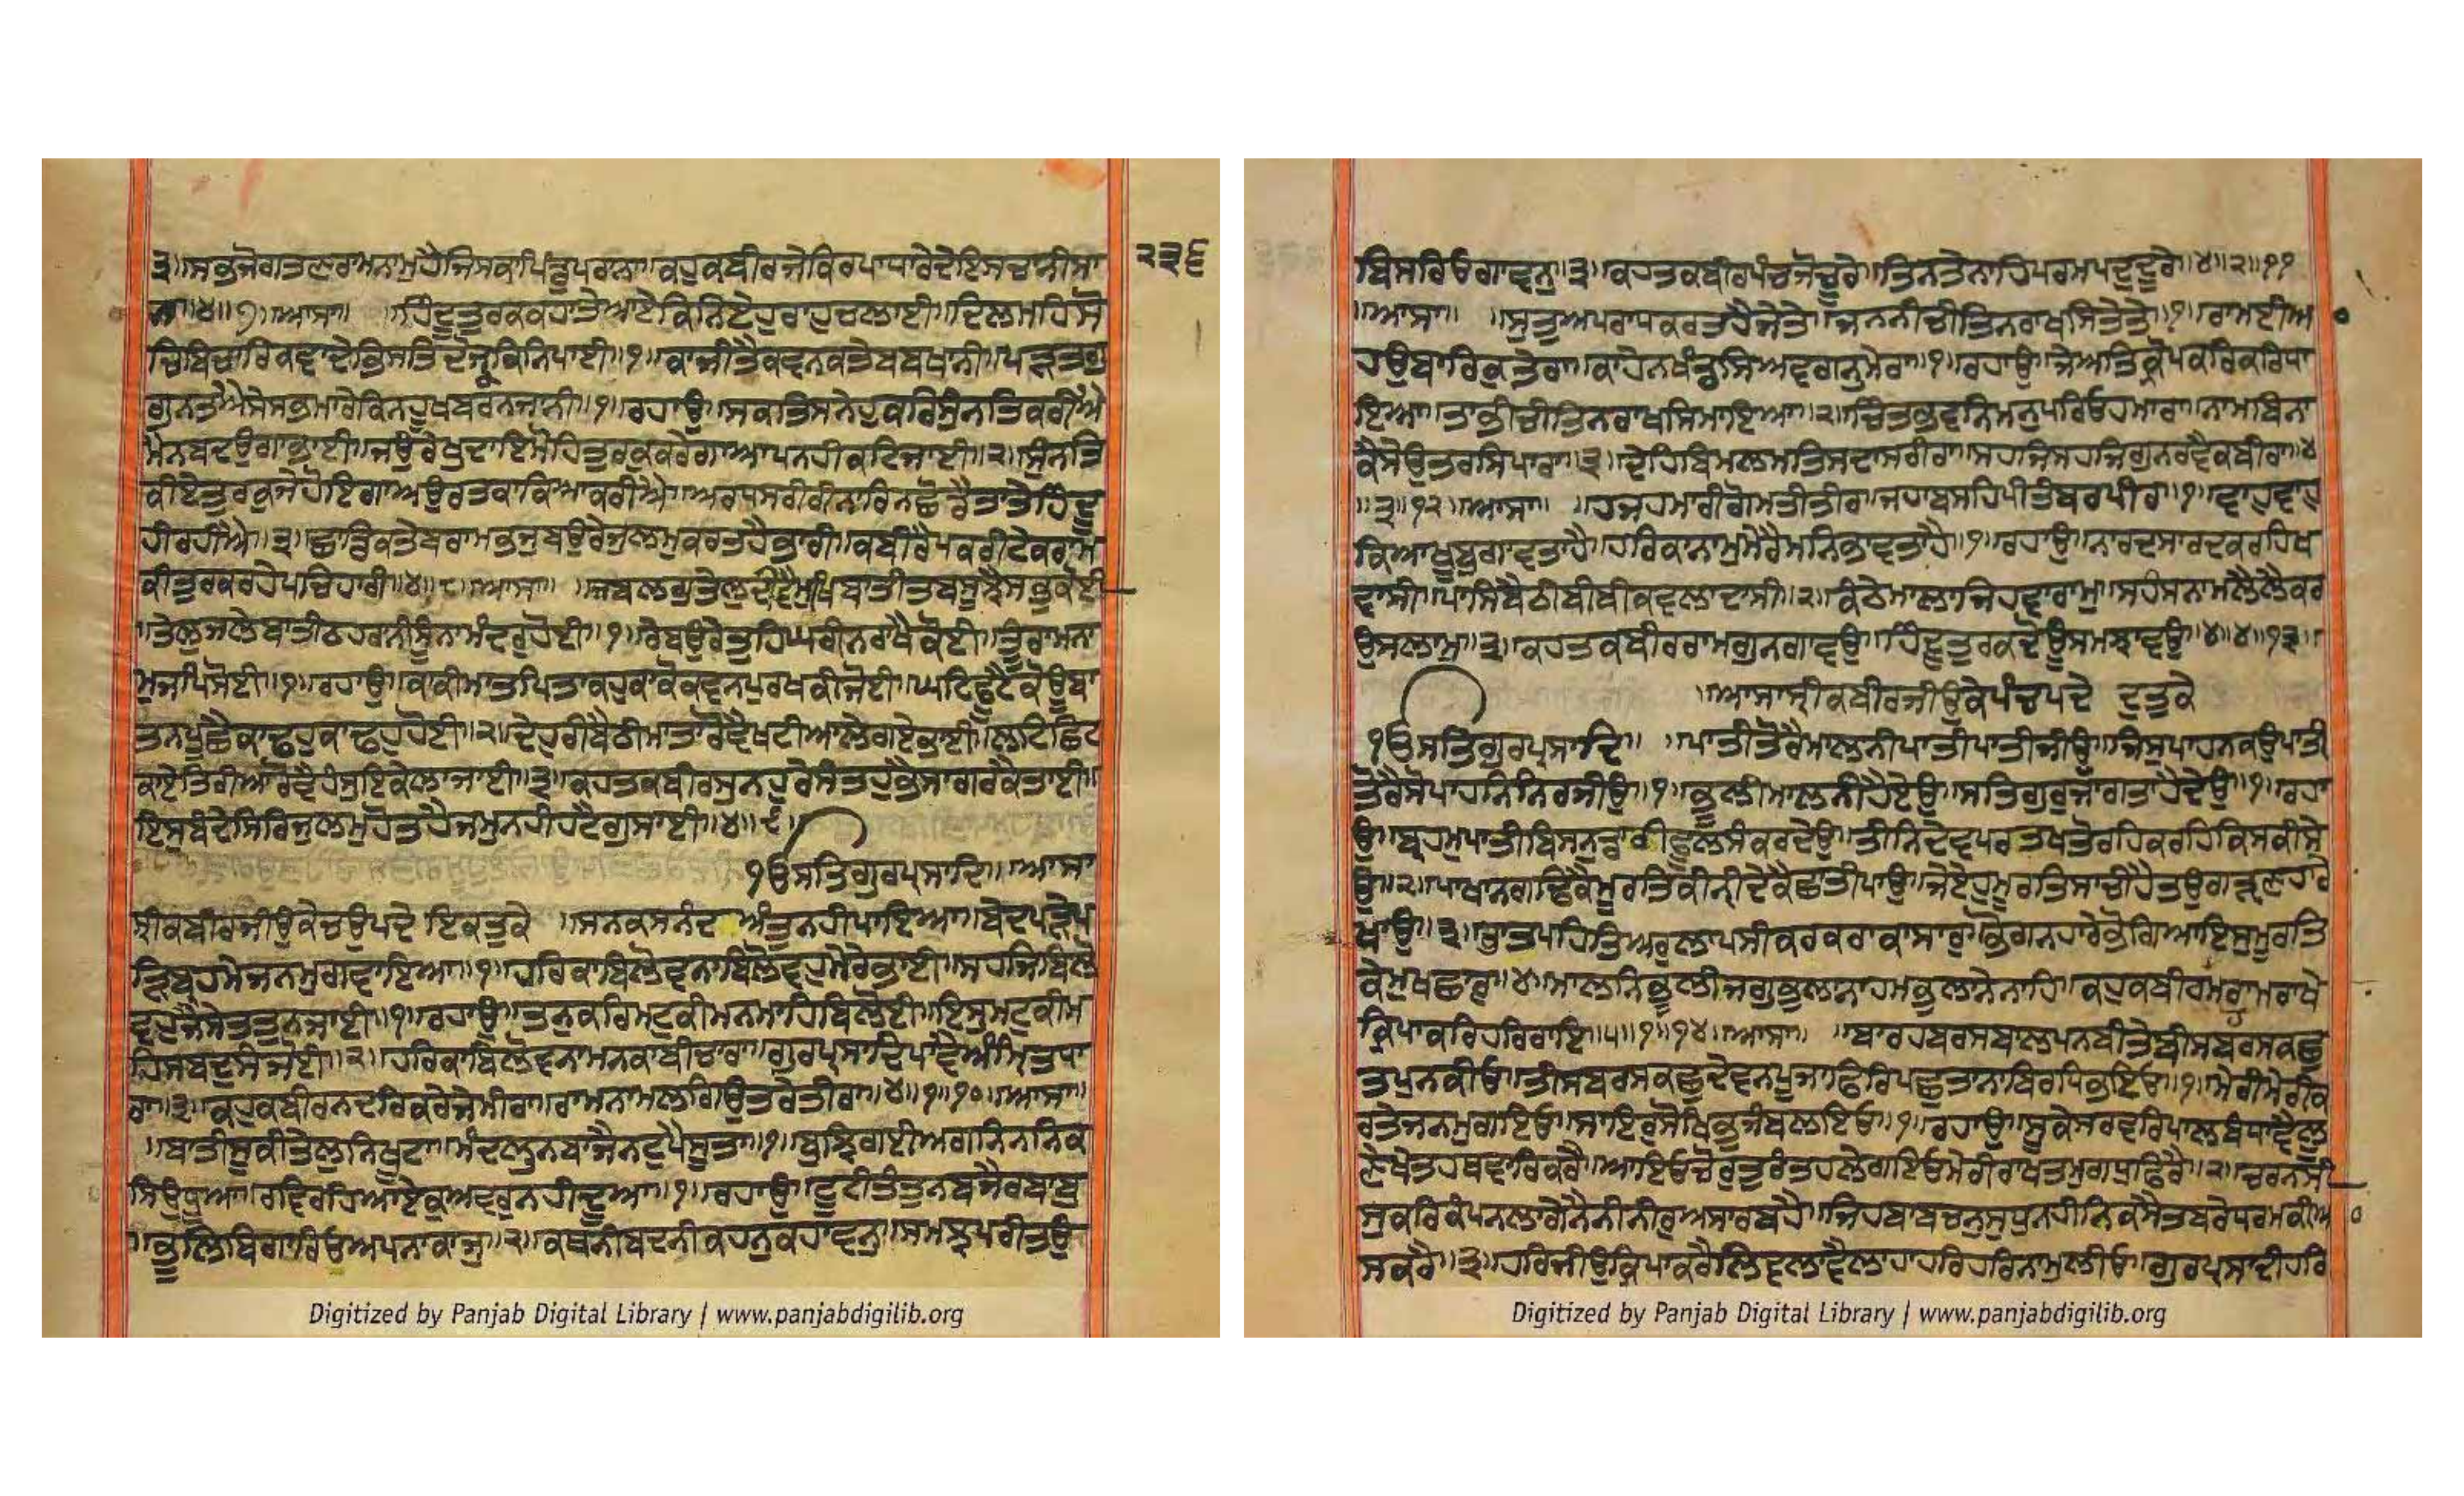 ੩॥ਸਭੁਜੋਗਤਣਰਾਮਨਾਮੁਹੈਜਿਸਕਾਪਿੰਡੁਪਰਾਨਾ॥ਕਹੁਕਬੀਰਜੇਕਿਰਪਾਧਾਰੇਦੇਇਸਚਾਨੀਸਾ
ਨਾ॥੪॥੭॥ਆਸਾ॥ ਹਿੰਦੂਤੁਰਕਕਹਾਤੇਆਏਕਿਨਿਏਹਰਾਹਚਲਾਈ॥ਦਿਲਮਹਿਸੋ
ਚਿਬਿਚਾਰਿਕਵਾਦੇਭਿਸਤਿਦੋਜਕਿਨਿਪਾਈ॥੧॥ਕਾਜੀਤੈਕਵਨਕਤੇਬਬਖਾਨੀ॥ਪੜਤਗੁ
ਗੁਨਤਐਸੇਸਭਮਾਰੇਕਿਨਹੂਖਬਰਨਜਾਨੀ॥੧॥ਰਹਾਉ॥ਸਕਤਿਸਨੇਹੁਕਰਿਸੁੰਨਤਿਕਰੀਐ
ਮੈਨਬਦਉਗਾਭਾਈ॥ਜਉਰੇਖੁਦਾਇਮੋਹਿਤੁਰਕੁਕਰੈਗਾਆਪਨਹੀਕਟਿਜਾਈ॥੨॥ਸੁੰਨਤਿ
ਕੀਏਤੁਰਕੁਜੇਹੋਇਗਾਅਉਰਤਕਾਕਿਆਕਰੀਐ॥ਅਰਧਸਰੀਰੀਨਾਰਿਨਛੋਡੈਤਾਤੇਹਿੰਦੂ
ਹੀਰਹੀਐ॥੩॥ਛਾਡਿਕਤੇਬਰਾਮਭਜੁਬਉਰੇਜੁਲਮੁਕਰਤਹੈਭਾਰੀ॥ਕਬੀਰੈਪਕਰੀਟੇਕਰਾਮ
ਕੀਤੁਰਕਰਹੇਪਚਿਹਾਰੀ॥੪॥੮॥ਆਸਾ॥ ਜਬਲਗੁਤੇਲੁਦੀਵੈਮੁਖਿਬਾਤੀਤਬਸੂਝੈਸਭੁਕੋਈ
॥ਤੇਲਜਲੇਬਾਤੀਠਹਰਾਨੀਸੂੰਨਾਮੰਦਰੁਹੋਈ॥੧॥ਰੇਬਉਰੇਤੁਹਿਘਰੀਨਰਾਖੈਕੋਈ॥ਤੂੰਰਾਮਨਾ
ਮੁਜਪਿਸੋਈ॥੧॥ਰਹਾਉ॥ਕਾਕੀਮਾਤਪਿਤਾਕਹੁਕਾਕੋਕਵਨਪੁਰਖਕੀਜੋਈ॥ਘਟਿਫੂਟੈਕੋਊਬਾ
ਤਨਪੂਛੈਕਾਢਹੁਕਾਢਹੁਹੋਈ॥੨॥ਦੇਹੁਰੀਬੈਠੀਮਾਤਾਰੋਵੈਖਟੀਆਲੇਗਏਭਾਈ॥ਲਟਛਿਟ
ਕਾਏਤਿਰੀਆਰੋਵੈਹੰਸੁਇਕੇਲਾਜਾਈ॥੩॥ਕਹਤਕਬੀਰਸੁਨਹੁਰੇਸੰਤਹੁਭੈਸਾਗਰਕੈਤਾਈ॥
ਇਸੁਬੰਦੇਸਿਰਿਜੁਲਮੁਹੋਤਹੈਜਮੁਨਹੀਹਟੈਗੁਸਾਈ॥੪॥੯॥
੧ਓਸਤਿਗੁਰਪ੍ਰਸਾਦਿ॥ਆਸਾ
ਸ੍ਰੀਕਬੀਰਜੀਉਕੇਚਉਪਦੇ ਇਕਤੁਕੇ ॥ਸਨਕਸਨੰਦ ਅੰਤੁਨਹੀਪਾਇਆ॥ਬੇਦਪੜੇਪ
ੜਿਬ੍ਰਹਮੇਜਨਮੁਗਵਾਇਆ॥੧॥ਹਰਿਕਾਬਿਲੋਵਨਾਬਿਲੋਵਹੁਮੇਰੇਭਾਈ॥ਸਹਜਿਬਿਲੋ
ਵਹੁਜੈਸੇਤਤੁਨਜਾਈ॥੧॥ਰਹਾਉ॥ਤਨੁਕਰਿਮਟੁਕੀਮਨਮਾਹਿਬਿਲੋਈ॥ਇਸੁਮਟੁਕੀਮ
ਹਿਸਬਦੁਸੰਜੋਈ॥੨॥ਹਰਿਕਾਬਿਲੋਵਨਾਮਨਕਾਬੀਚਾਰਾ॥ਗੁਰਪ੍ਰਸਾਦਿਪਾਵੈਅੰਮ੍ਰਿਤਧਾ
ਰਾ॥੩॥ਕਹੁਕਬੀਰਨਦਰਿਕਰੇਜੇਮੀਰਾ॥ਰਾਮਨਾਮਲਗਿਉਤਰੇਤੀਰਾ॥੪॥੧॥੧੦॥ਆਸਾ॥
॥ਬਾਤੀਸੂਕੀਤੇਲੁਨਿਖੂਟਾ॥ਮੰਦਲੁਨਬਾਜੈਨਟੁਪੈਸੂਤਾ॥੧॥ਬੁਝਿਗਈਅਗਨਿਨਨਿਕ
ਸਿਉਧੂੰਆ॥ਰਵਿਰਹਿਆਏਕੁਅਵਰੁਨਹੀਦੂਆ॥੧॥ਰਹਾਉ॥ਟੂਟੀਤੰਤੁਨਬਜੈਰਬਾਬੁ
॥ਭੂਲਿਬਿਗਾਰਿਓਅਪਨਾਕਾਜੁ॥੨॥ਕਥਨੀਬਦਨੀਕਹਨੁਕਹਾਵਨੁ॥ਸਮਝਿਪਰੀਤਉ
੨੩੬
Digitized by Panjab Digital Library | www.panjabdigilib.org
ਬਿਸਰਿਓਗਾਵਨੁ॥੩॥ਕਹਤਕਬੀਰਪੰਚਜੋਚੂਰੇ॥ਤਿਨਤੇਨਾਹਿਪਰਮਪਦੁਦੂਰੇ॥੪॥੨॥੧੧
॥ਆਸਾ॥ ॥ਸੁਤੁਅਪਰਾਧਕਰਤਹੈਜੇਤੇ॥ਜਨਨੀਚੀਤਿਨਰਾਖਸਿਤੇਤੇ॥੧॥ਰਾਮਈਆ
ਹਉਬਾਰਿਕੁਤੇਰਾ॥ਕਾਹੇਨਖੰਡਸਿਅਵਗਨੁਮੇਰਾ॥੧॥ਰਹਾਉ॥ਜੇਅਤਿਕ੍ਰੋਪਕਰਿਕਰਿਧਾ
ਇਆ॥ਤਾਭੀਚੀਤਿਨਰਾਖਸਿਮਾਇਆ॥੨॥ਚਿੰਤਭਵਨਿਮਨੁਪਰਿਓਹਮਾਰਾ॥ਨਾਮਬਿਨਾ
ਕੈਸੇਉਤਰਸਿਪਾਰਾ॥੩॥ਦੇਹਿਬਿਮਲਮਤਿਸਦਾਸਰੀਰਾ॥ਸਹਜਿਸਹਜਿਗੁਨਰਵੈਕਬੀਰਾ॥੪
॥੩॥੧੨॥ਆਸਾ॥ ॥ਹਜਹਮਾਰੀਗੋਮਤੀਤੀਰ॥ਜਹਾਬਸਹਿਪੀਤੰਬਰਪੀਰ॥੧॥ਵਾਹੁਵਾਹੁ
ਕਿਆਖੂਬੁਗਾਵਤਾਹੈ॥ਹਰਿਕਾਨਾਮੁਮੇਰੈਮਨਿਭਾਵਤਾਹੈ॥੧॥ਰਹਾਉ॥ਨਾਰਦਸਾਰਦਕਰਹਿਖ
ਵਾਸੀ॥ਪਾਸਿਬੈਠੀਬੀਬੀਕਵਲਾਦਾਸੀ॥੨॥ਕੰਠੇਮਾਲਾਜਿਹਵਾਰਾਮੁ॥ਸਹੰਸਨਾਮਲੈਲੈਕਰ
ਉਸਲਾਮੁ॥੩॥ਕਹਤਕਬੀਰਰਾਮਗੁਨਗਾਵਉ॥ਹਿੰਦੂਤੁਰਕਦੋਊਸਮਝਾਵਉ॥੪॥੪॥੧੩॥
॥ਆਸਾਸ੍ਰੀਕਬੀਰਜੀਉਕੇਪੰਚਪਦੇ ਦੁਤੁਕੇ
੧ਓਸਤਿਗੁਰਪ੍ਰਸਾਦਿ॥ ॥ਪਾਤੀਤੋਰੈਮਾਲਨੀਪਾਤੀਪਾਤੀਜੀਉ॥ਜਿਸੁਪਾਹਨਕਉਪਾਤੀ
ਤੋਰੈਸੋਪਾਹਨਿਨਿਰਜੀਉ॥੧॥ਭੂਲੀਮਾਲਨੀਹੈਏਉ॥ਸਤਿਗੁਰੁਜਾਗਤਾਹੈਦੇਉ॥੧॥ਰਹਾ
ਉ॥ਬ੍ਰਹਮੁਪਾਤੀਬਿਸਨੁਡਾਰੀਫੂਲਸੰਕਰਦੇਉ॥ਤੀਨਿਦੇਵਪਰਤਖਤੋਰਹਿਕਰਹਿਕਿਸਕੀਸੇ
ਉ॥੨॥ਪਾਖਾਨਗਢਿਕੈਮੂਰਤਿਕੀਨੀਦੇਕੈਛਾਤੀਪਾਉ॥ਜੇਏਹਮੂਰਤਿਸਾਚੀਹੈਤਉਗੜ੍ਹਣਹਾਰੇ
ਖਾਉ॥੩॥ਭਾਤੁਪਹਿਤਿਅਰੁਲਾਪਸੀਕਰਕਰਾਕਾਸਾਰੁ॥ਭੋਗਨਹਾਰੇਭੋਗਿਆਇਸੁਮੂਰਤਿ
ਕੇਮੁਖਛਾਰੁ॥੪॥ਮਾਲਨਿਭੂਲੀਜਗੁਭੁਲਾਨਾਹਮਭੁਲਾਨੇਨਾਹਿ॥ਕਹੁਕਬੀਰਹਮਰਾਮਰਾਖੇ
ਕ੍ਰਿਪਾਕਰਿਹਰਿਰਾਇ॥੫॥੧॥੧੪॥ਆਸਾ॥ ॥ਬਾਰਹਬਰਸਬਾਲਪਨਬੀਤੇਬੀਸਬਰਸਕਛੁ
ਤਪੁਨਕੀਓ॥ਤੀਸਬਰਸਕਛੁਦੇਵਨਪੂਜਾਫਿਰਿਪਛੁਤਾਨਾਬਿਰਧਿਭਇਓ॥੧॥ਮੇਰੀਮੇਰੀਕ
ਰਤੇਜਨਮੁਗਇਓ॥ਸਾਇਰੁਸੋਖਿਭੁਜੰਬਲਇਓ॥੧॥ਰਹਾਉ॥ਸੂਕੇਸਰਵਰਿਪਾਲਬੰਧਾਵੈਲੂ
ਣੇਖੇਤਹਥਵਾਰਿਕਰੈ॥ਆਇਓਚੋਰੁਤੁਰੰਤਹਲੇਗਇਓਮੇਰੀਰਾਖਤਮੁਗਧੁਫਿਰੈ॥੨॥ਚਰਨਸੀ
ਸੁਕਰਕੰਪਨਲਾਗੇਨੈਨੀਨੀਰੁਅਸਾਰਬਹੈ॥ਜਿਹਬਾਬਚਨੁਸੁਧੁਨਹੀਨਿਕਸੈਤਬਰੇਧਰਮਕੀਆ
ਸਕਰੈ॥੩॥ਹਰਿਜੀਉਕ੍ਰਿਪਾਕਰੈਲਿਵਲਾਵੈਲਾਹਾਹਰਿਹਰਿਨਾਮੁਲੀਓ॥ਗੁਰਪ੍ਰਸਾਦੀਹਰਿ
Digitized by Panjab Digital Library | www.panjabdigilib.org